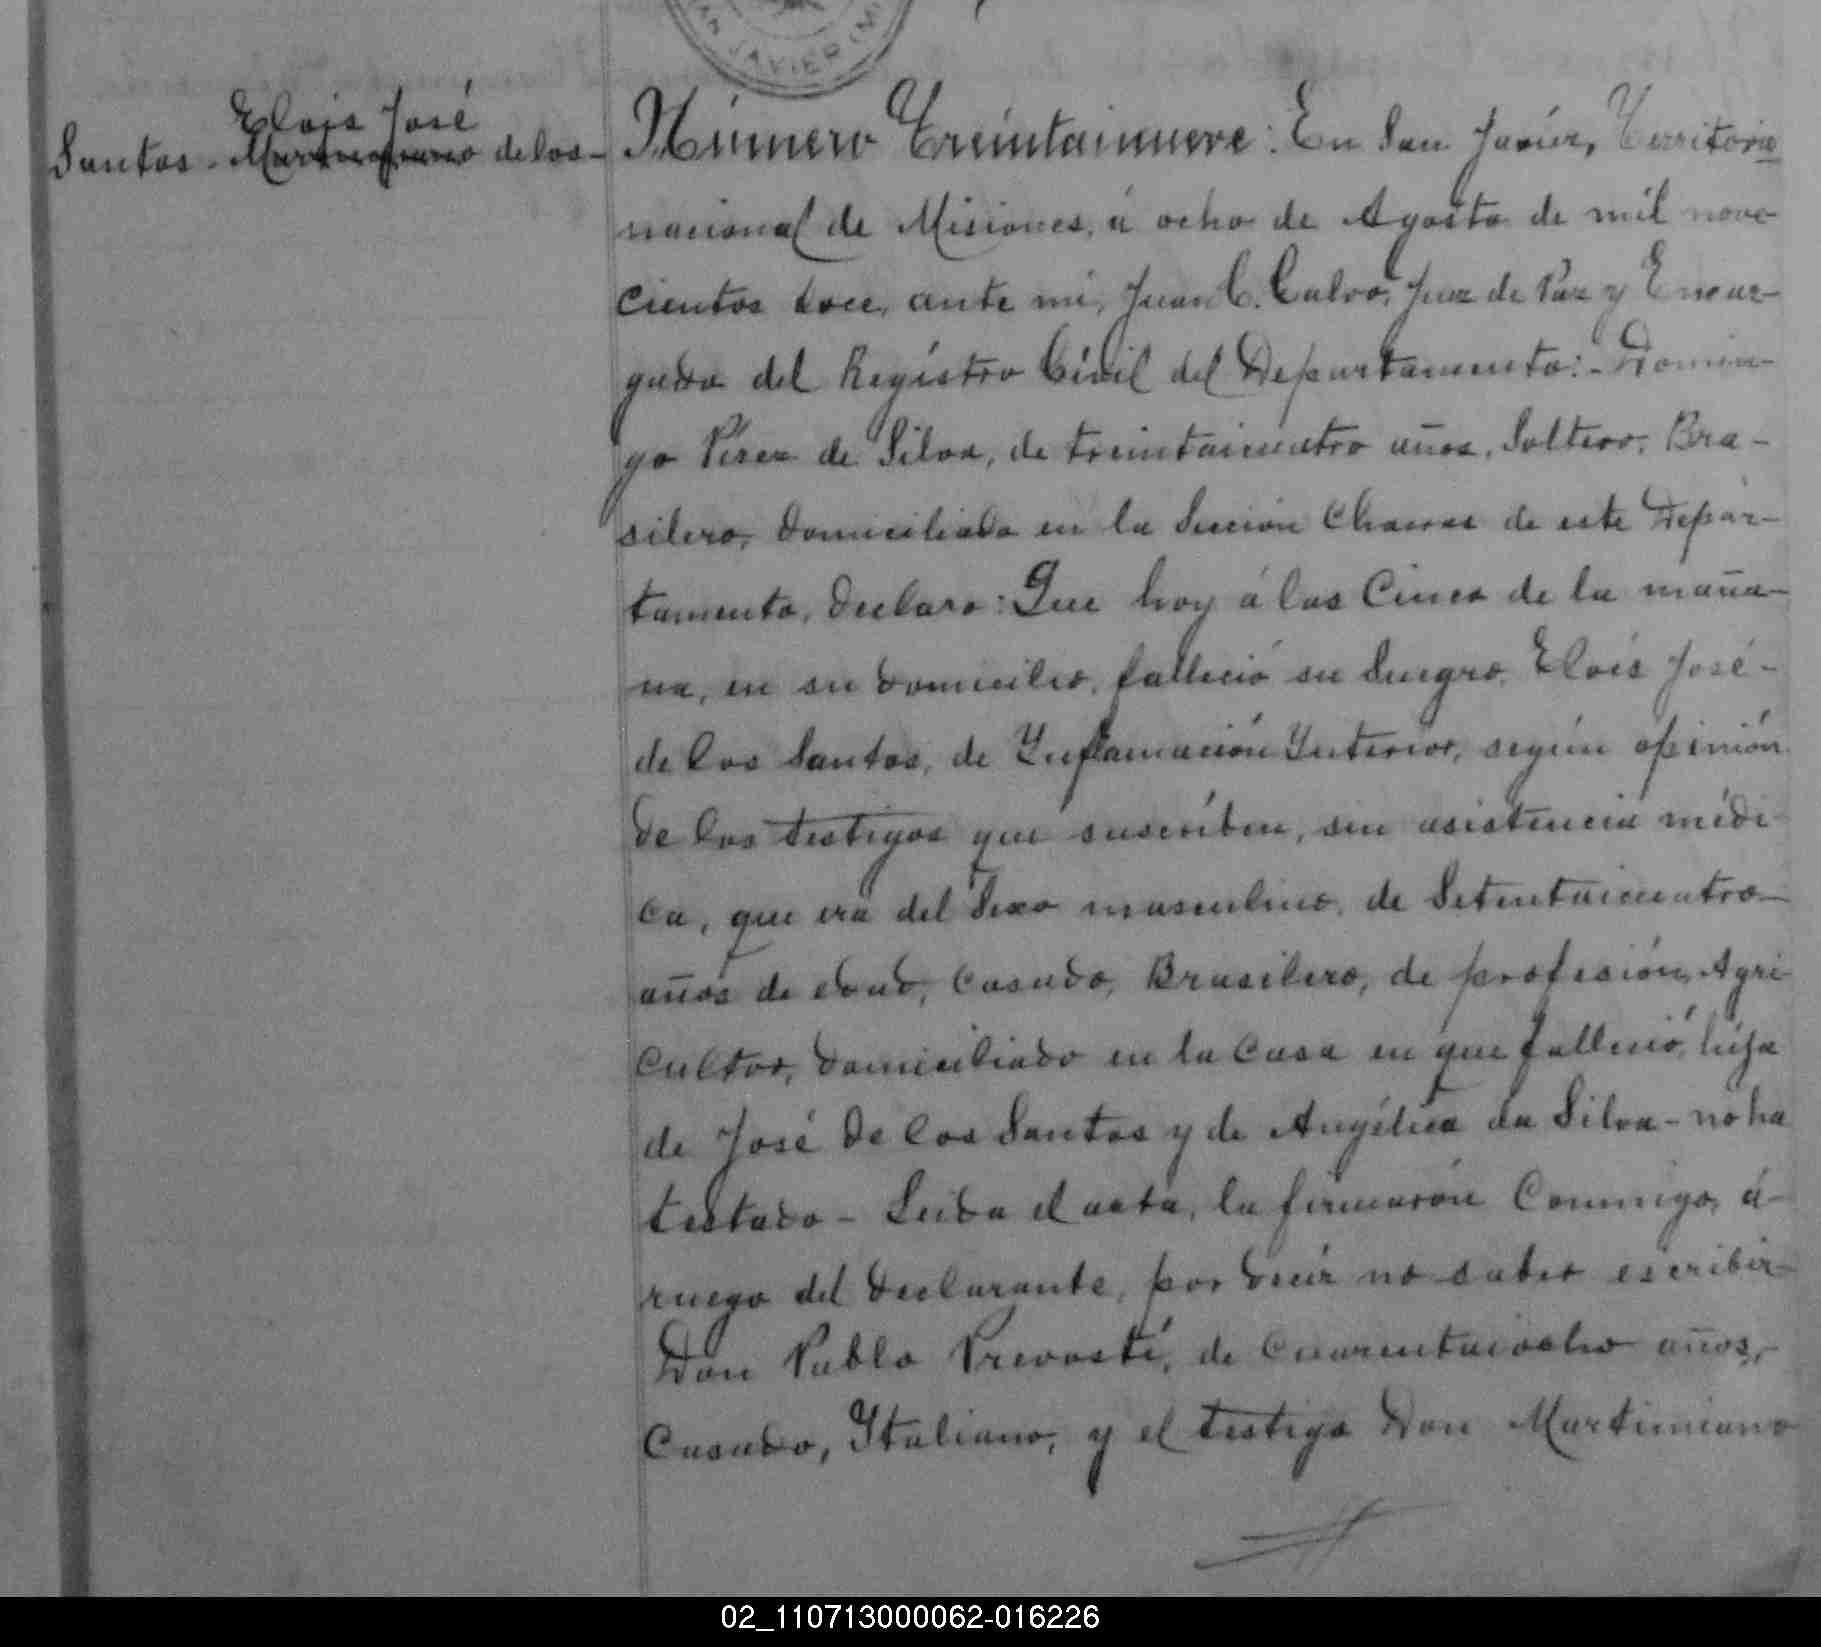 SAN JAVIER (MI
Elois José
Santos - Martimiano de los -
Número Treintainueve: En San Javier, Territorio
nacional de Misiones, á ocho de Agosto de mil nove-
cientos doce, ante mi, Juan C. Calvo, Juez de Paz y Encar-
gado del Registro Civil del Departamento: - Domin-
go Pérez de Silva, de treintaicuatro años, Soltero, Bra-
silero, domiciliado en la Sección Chacras de este Depar-
tamento, declaro: Que hoy á las Cinco de la maña-
na, en su domicilio, falleció su Suegro, Elois José -
de los Santos, de Inflamación Interior, según opinión
de los testigos que suscriben, sin asistencia médi-
ca, que era del Sexo masculino, de Setentaicuatro
años de edad, Casado, Brasilero, de profesión, Agri-
cultor, domiciliado en la Casa en que falleció, hijo
de José de los Santos y de Angélica da Silva - no ha
testado - Leida el acta, la firmarón Conmigo, á -
ruego del declarante, por decir no saber escribir -
Don Pablo Prevosti, de Cuarentaiocho años, -
Casado, Italiano, y el testigo Don Martimiano
02_110713000062-016226